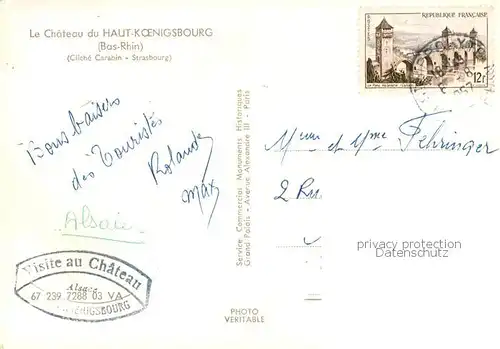 Le Château du HAUT-KŒNIGSBOURG
(Bas-Rhin)
(Cliché Carabin - Strasbourg)
REPUBLIQUE FRANÇAISE
12F
Bons baisers
des Touristes
Rolande
Max
Alsace
Service Commercial Monuments Historiques
Grand Palais - Avenue Alexandre III - Paris
et Mme Fehringer
2 Ru
privacy protection
Datenschutz
Visite au Château
Alsace
67 239 7288 03 VA
KŒNIGSBOURG
PHOTO
VERITABLE